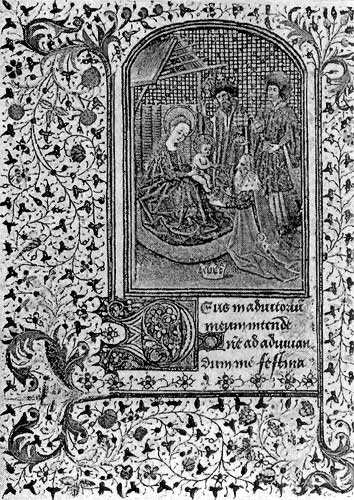 Deus in adiutoriū
meum intende
Dne ad adiuuan
dum me festina